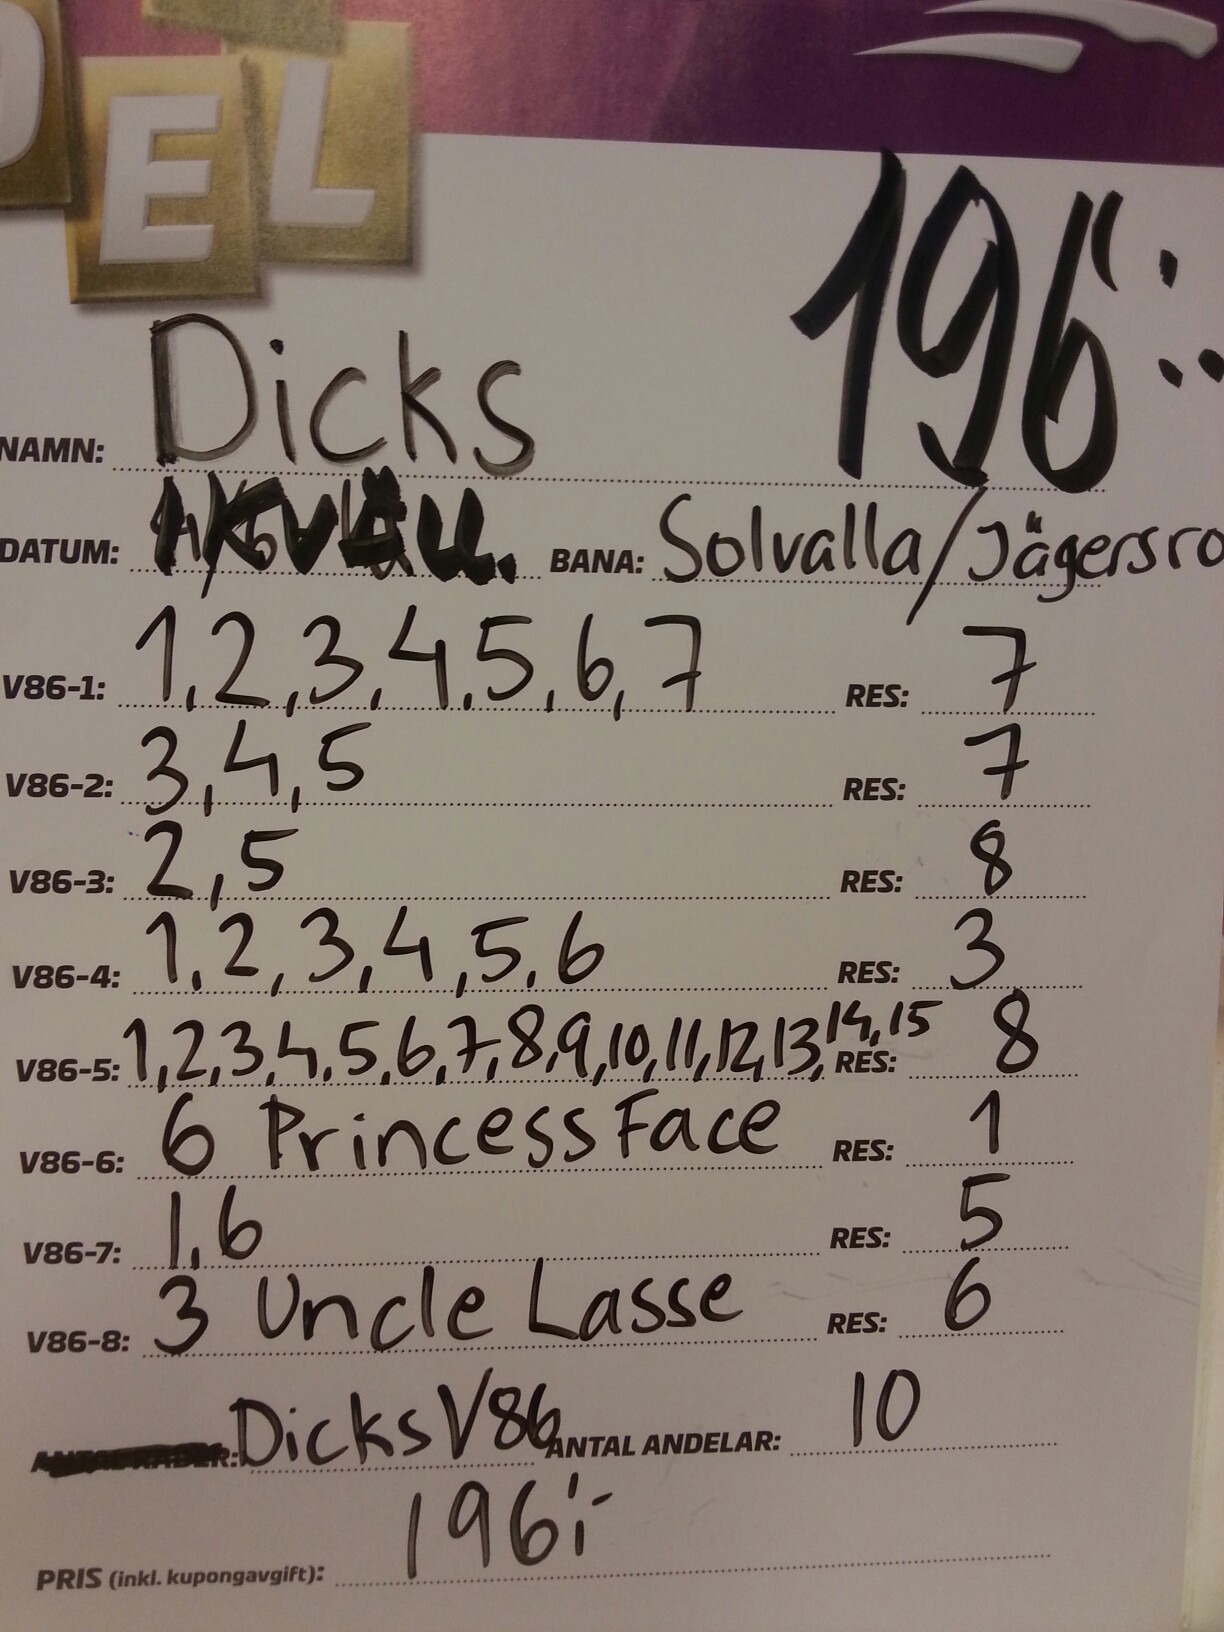 EL
196:-
NAMN: Dicks
DATUM: IKVÄLL. BANA: Solvalla/Jägersro
V86-1: 1,2,3,4,5,6,7 RES: 7
V86-2: 3,4,5 RES: 7
V86-3: 2,5 RES: 8
V86-4: 1,2,3,4,5,6 RES: 3
V86-5: 1,2,3,4,5,6,7,8,9,10,11,12,13,14,15 RES: 8
V86-6: 6 Princess Face RES: 1
V86-7: 1,6 RES: 5
V86-8: 3 Uncle Lasse RES: 6
Dicks V86 ANTAL ANDELAR: 10
196:-
PRIS (inkl. kupongavgift):